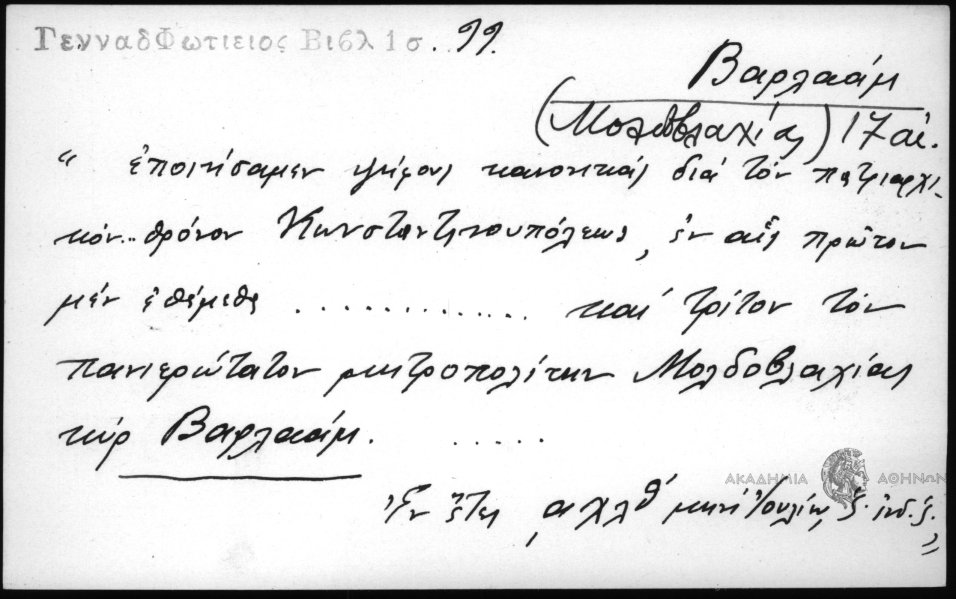 ΓενναδΦωτιειος Βιβλ 1 σ. 99.
Βαρλαάμ
(Μολδοβλαχίας) 17 αἰ.
“ ἐποιήσαμεν ψήφους κανονικάς διά τόν πατριαρχι-
κόν.. θρόνον Κωνσταντινουπόλεως, ἐν αἷς πρῶτον
μέν ἐθέμεθα ............ καί τρίτον τόν
πανιερώτατον μητροπολίτην Μολδοβλαχίας
κύρ Βαρλαάμ. .....
ΑΚΑΔΗΜΙΑ ΑΘΗΝΩΝ
Ἐν ἔτει ͵αχλθʹ μηνί Ἰουλίῳ, ζ. ἰνδ. ζ. ”